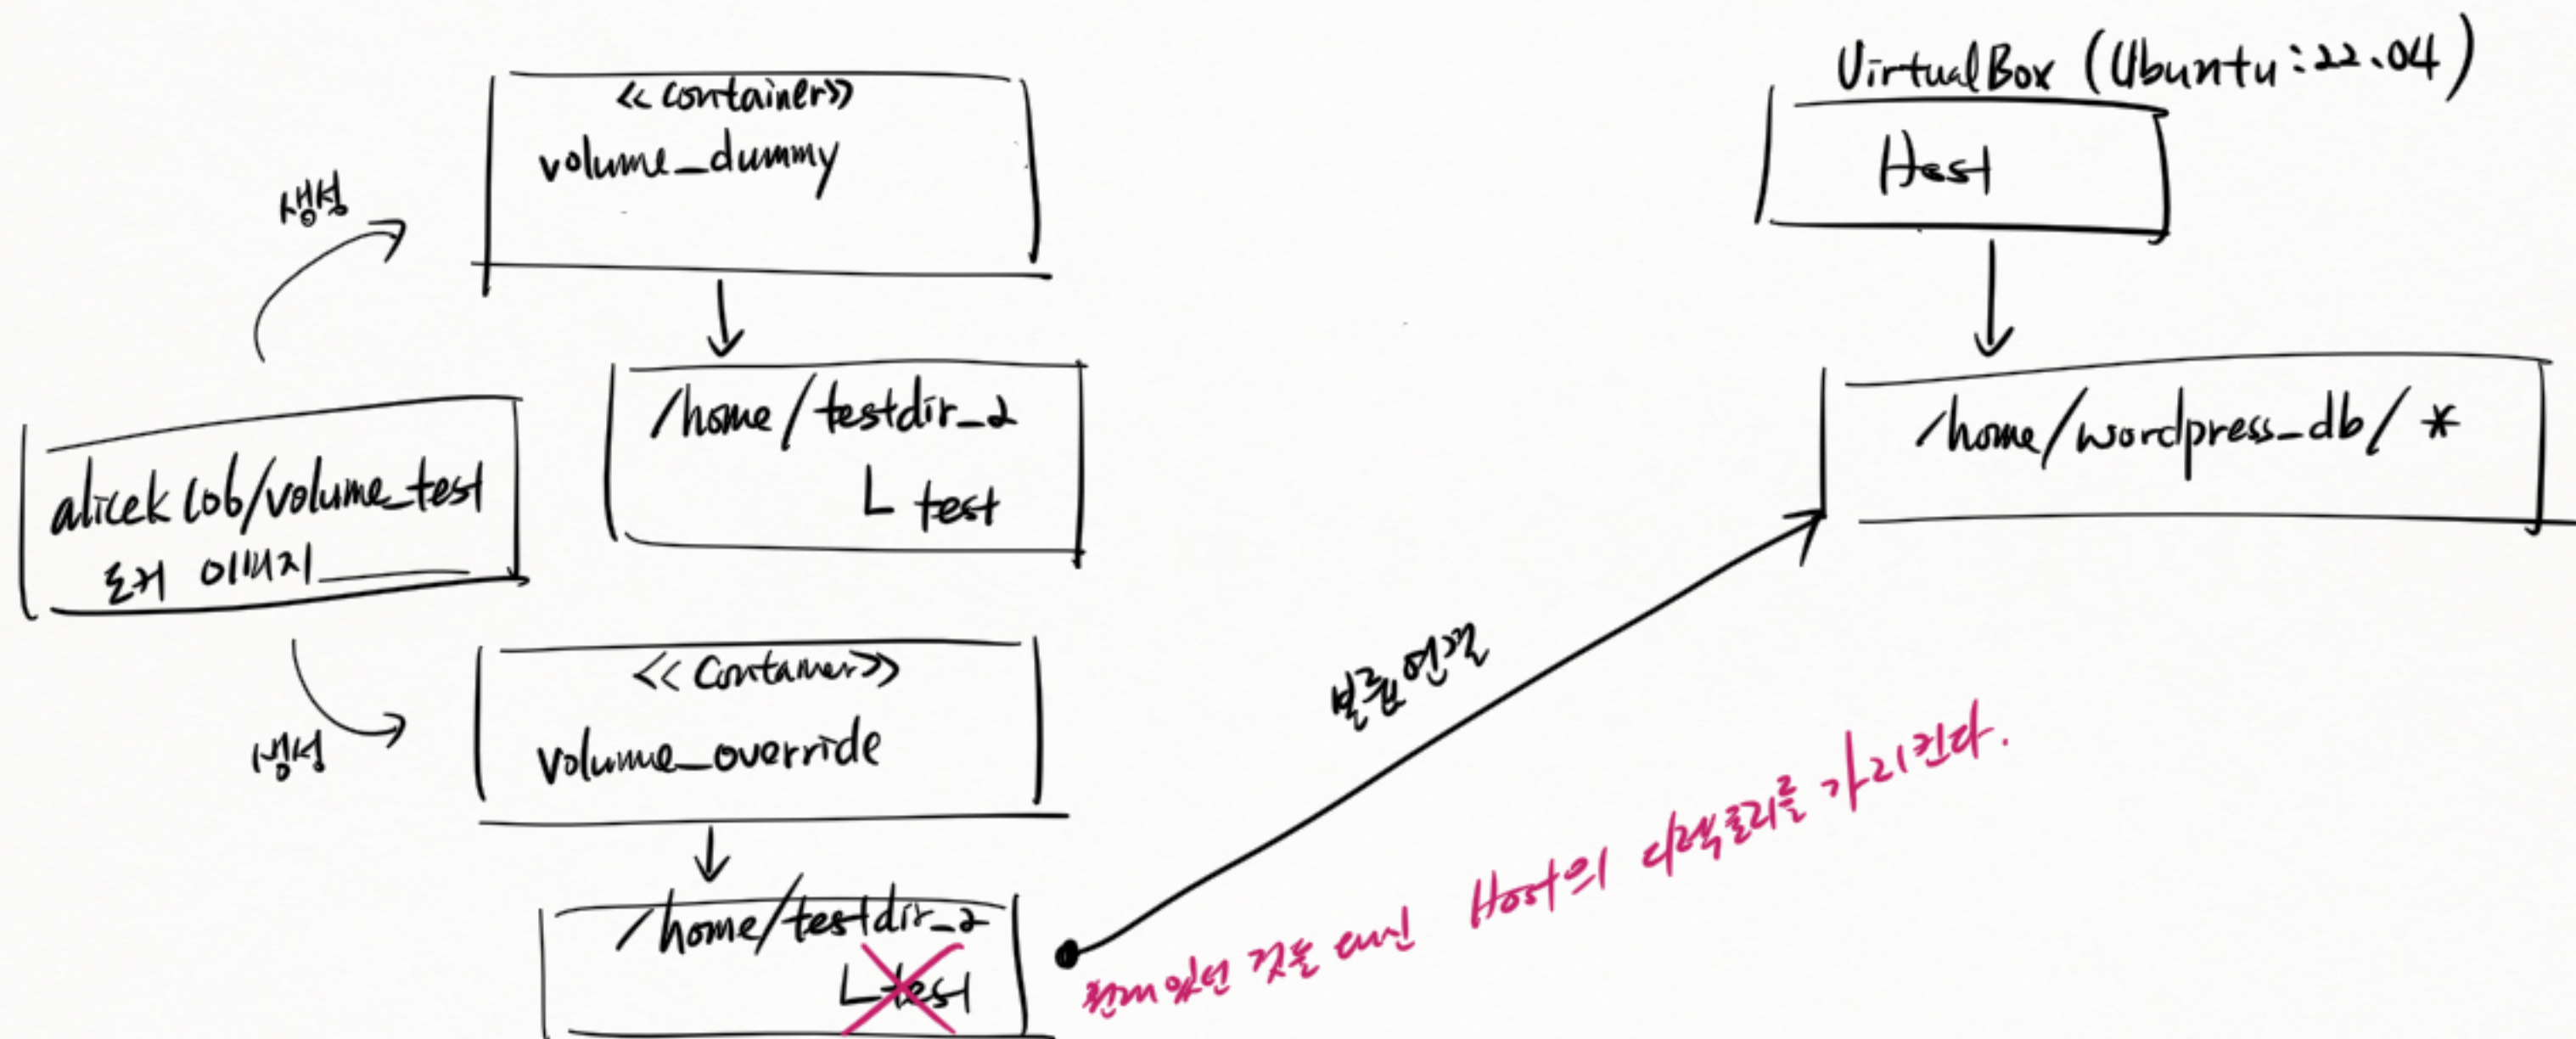 <<container>>
volume_dummy
생성
/home/testdir_2
L test
alicek106/volume_test
도커 이미지
생성
<<Container>>
volume_override
/home/testdir_2
L test
VirtualBox (Ubuntu:22.04)
Host
/home/wordpress_db/*
볼륨 연결
원래 있던 것들 대신 Host의 디렉토리를 가리킨다.